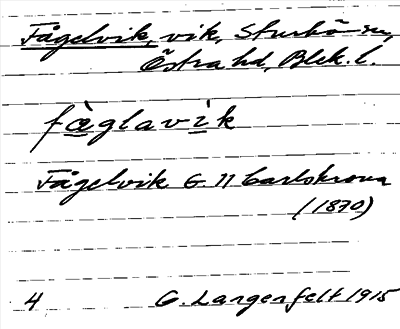 Fågelvik, vik, Sturkö sn,
Östra hd, Blek. l.
fàglavìk
Fågelvik G. 11 Carlskrona
(1870)
4 G. Langenfelt 1915